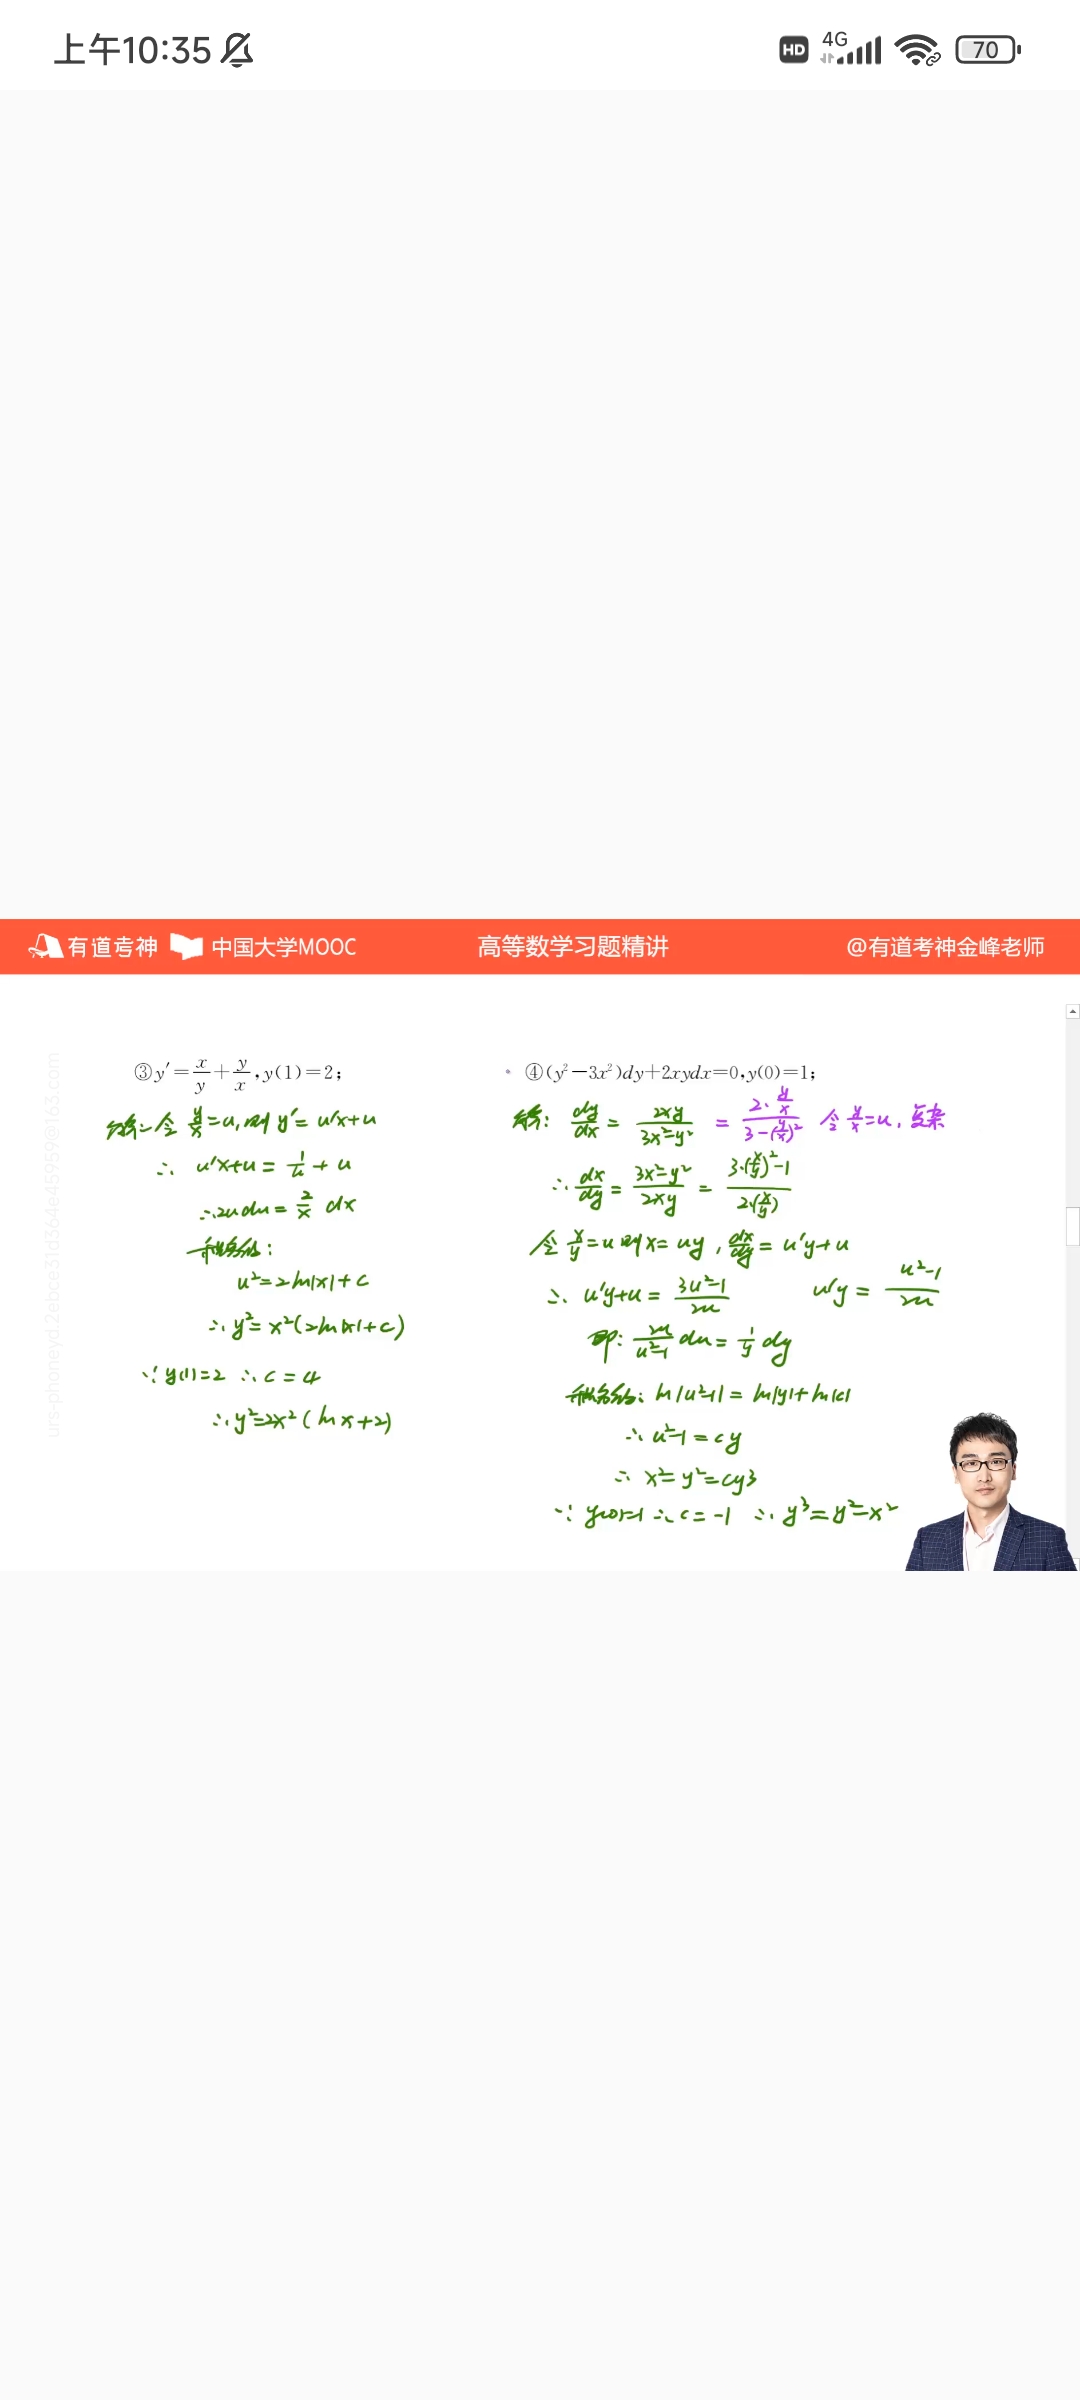 上午10:35 HD 4G 70
有道考神 中国大学MOOC 高等数学习题精讲 @有道考神金峰老师
③y′=x/y+y/x,y(1)=2;
令 y/x=u,则 y′=u′x+u
∴ u′x+u=1/u+u
∴2udu=2/x dx
u²=2ln|x|+c
∴y²=x²(2ln|x|+c)
∵y(1)=2 ∴c=4
∴y²=2x²(lnx+2)
④(y²−3x²)dy+2xydx=0,y(0)=1;
解: dy/dx=2xy/(3x²−y²)=2·(y/x)/(3−(y/x)²) 令 y/x=u, 复杂
∴dx/dy=(3x²−y²)/2xy=(3·(x/y)²−1)/(2·(x/y))
令 x/y=u 则x=uy, dx/dy=u′y+u
∴ u′y+u=(3u²−1)/2u u′y=(u²−1)/2u
即: 2u/(u²−1) du=1/y dy
ln|u²−1|=ln|y|+ln|c|
∴u²−1=cy
∴ x²−y²=cy³
∵ y(0)=1 ∴c=−1 ∴y³=y²−x²